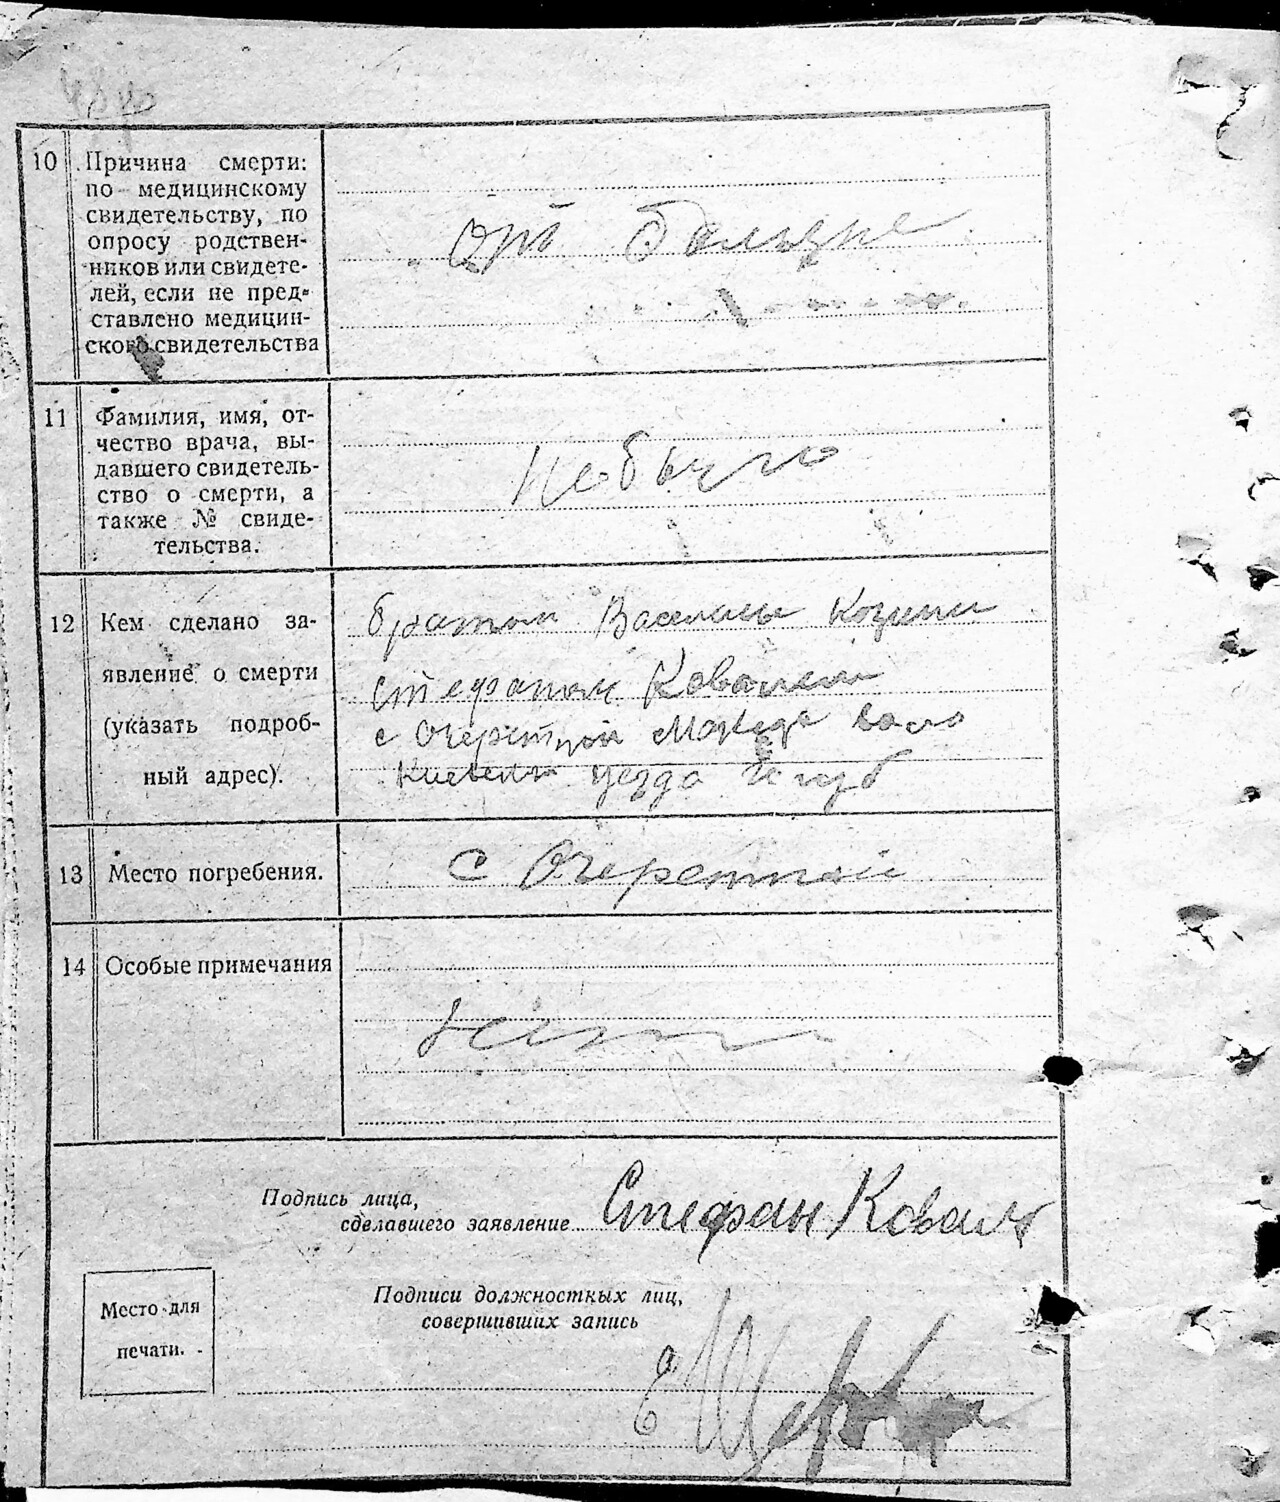 10 Причина смерти:
по медицинскому
свидетельству, по
опросу родствен-
ников или свидете-
лей, если не пред-
ставлено медицин-
ского свидетельства
отъ
11 Фамилия, имя, от-
чество врача, вы-
давшего свидетель-
ство о смерти, а
также № свиде-
тельства.
Небыло
12 Кем сделано за-
явление о смерти
(указать подроб-
ный адрес).
братом Козини
Стефаном Ковалем
с Очеретной
уезда
13 Место погребения.
с Очеретной
14 Особые примечания
Подпись лица,
сделавшего заявление Стефан Коваль
Место для
печати.
Подписи должностных лиц,
совершивших запись